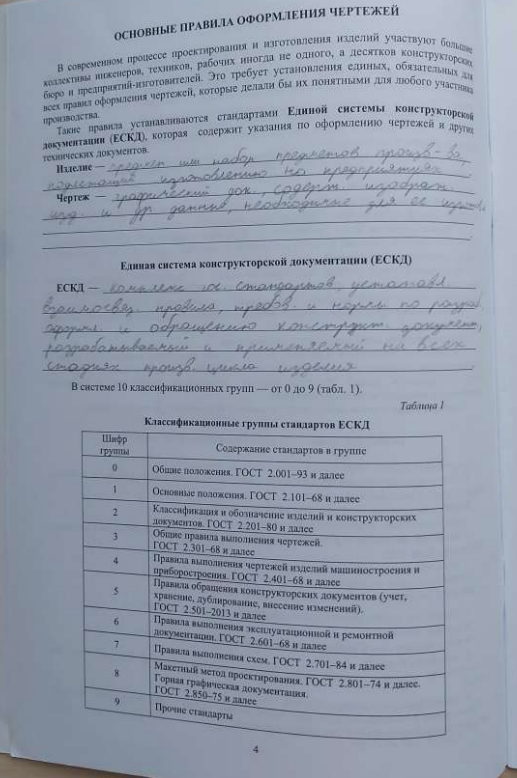 ОСНОВНЫЕ ПРАВИЛА ОФОРМЛЕНИЯ ЧЕРТЕЖЕЙ
В современном процессе проектирования и изготовления изделий участвуют большие
коллективы инженеров, техников, рабочих иногда не одного, а десятков конструкторских
бюро и предприятий-изготовителей. Это требует установления единых, обязательных для
всех правил оформления чертежей, которые делали бы их понятными для любого участника
производства.
Такие правила устанавливаются стандартами Единой системы конструкторской
документации (ЕСКД), которая содержит указания по оформлению чертежей и других
технических документов.
Изделие — предмет или набор предметов произв-ва,
подлежащие изготовлению на предприятиях
Чертеж — графический док., содерж. изображ.
изд. и др. данные, необходимые для ее
Единая система конструкторской документации (ЕСКД)
ЕСКД — комплекс гос. стандартов, установл.
взаимосвяз. правила, требов. и нормы по разраб.
оформл. и обращению конструкт. документ,
разрабатываемый и применяемый на всех
стадиях произв. цикла изделия
В системе 10 классификационных групп — от 0 до 9 (табл. 1).
Таблица 1
Классификационные группы стандартов ЕСКД
Шифр группы Содержание стандартов в группе
0 Общие положения. ГОСТ 2.001–93 и далее
1 Основные положения. ГОСТ 2.101–68 и далее
2 Классификация и обозначение изделий и конструкторских
документов. ГОСТ 2.201–80 и далее
3 Общие правила выполнения чертежей.
ГОСТ 2.301–68 и далее
4 Правила выполнения чертежей изделий машиностроения и
приборостроения. ГОСТ 2.401–68 и далее
5 Правила обращения конструкторских документов (учет,
хранение, дублирование, внесение изменений).
ГОСТ 2.501–2013 и далее
6 Правила выполнения эксплуатационной и ремонтной
документации. ГОСТ 2.601–68 и далее
7 Правила выполнения схем. ГОСТ 2.701–84 и далее
8 Макетный метод проектирования. ГОСТ 2.801–74 и далее.
Горная графическая документация.
ГОСТ 2.850–75 и далее
9 Прочие стандарты
4